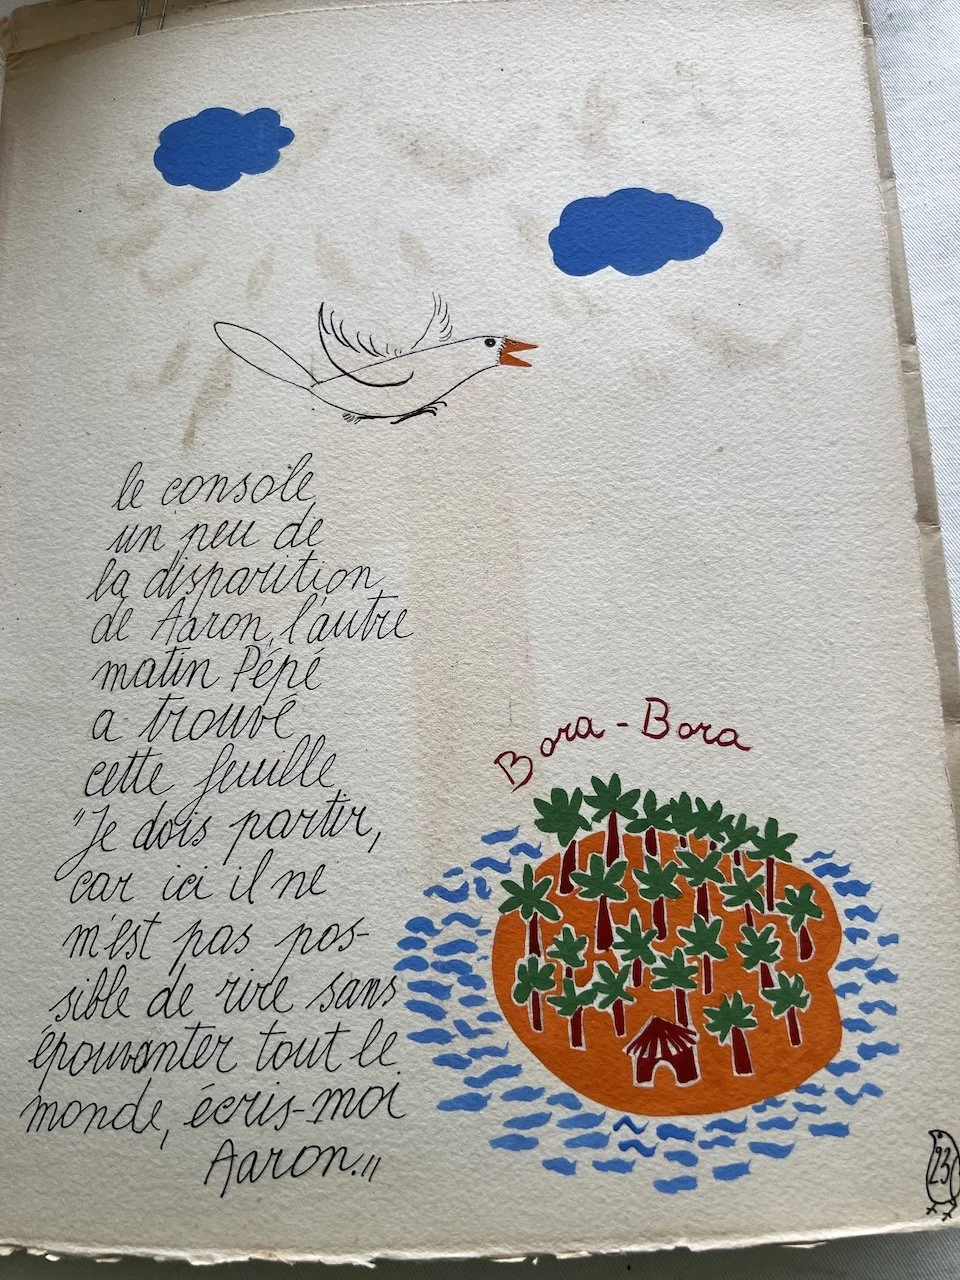 le console
un peu de
la disparition
de Aaron, l'autre
matin Pépé
a trouvé
cette feuille
"Je dois partir,
car ici il ne
m'est pas pos-
sible de rire sans
épouvanter tout le
monde, écris-moi
Aaron."
Bora-Bora
23